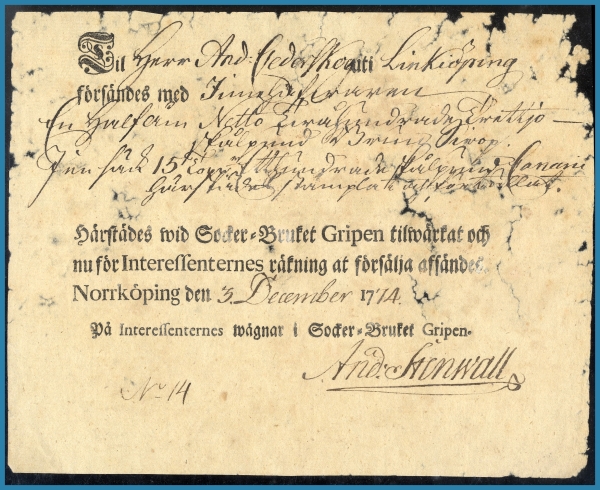 Till Herr And: Cederskog uti Linköping
försändes med Innehafwaren
En half åm Netto Twåhundrade Trettijo
skålpund Brun Sirop.
I en låda 15 Topp. Ett hundrade skålpund Canarie
Härstädes stämplat och förseglat.
Härstädes wid Socker-Bruket Gripen tilwärkat och
nu för Interessenternes räkning at försälja afsändes
Norrköping den 3. December 1774.
På Interessenternes wägnar i Socker-Bruket Gripen.
And: Stenwall
No 14